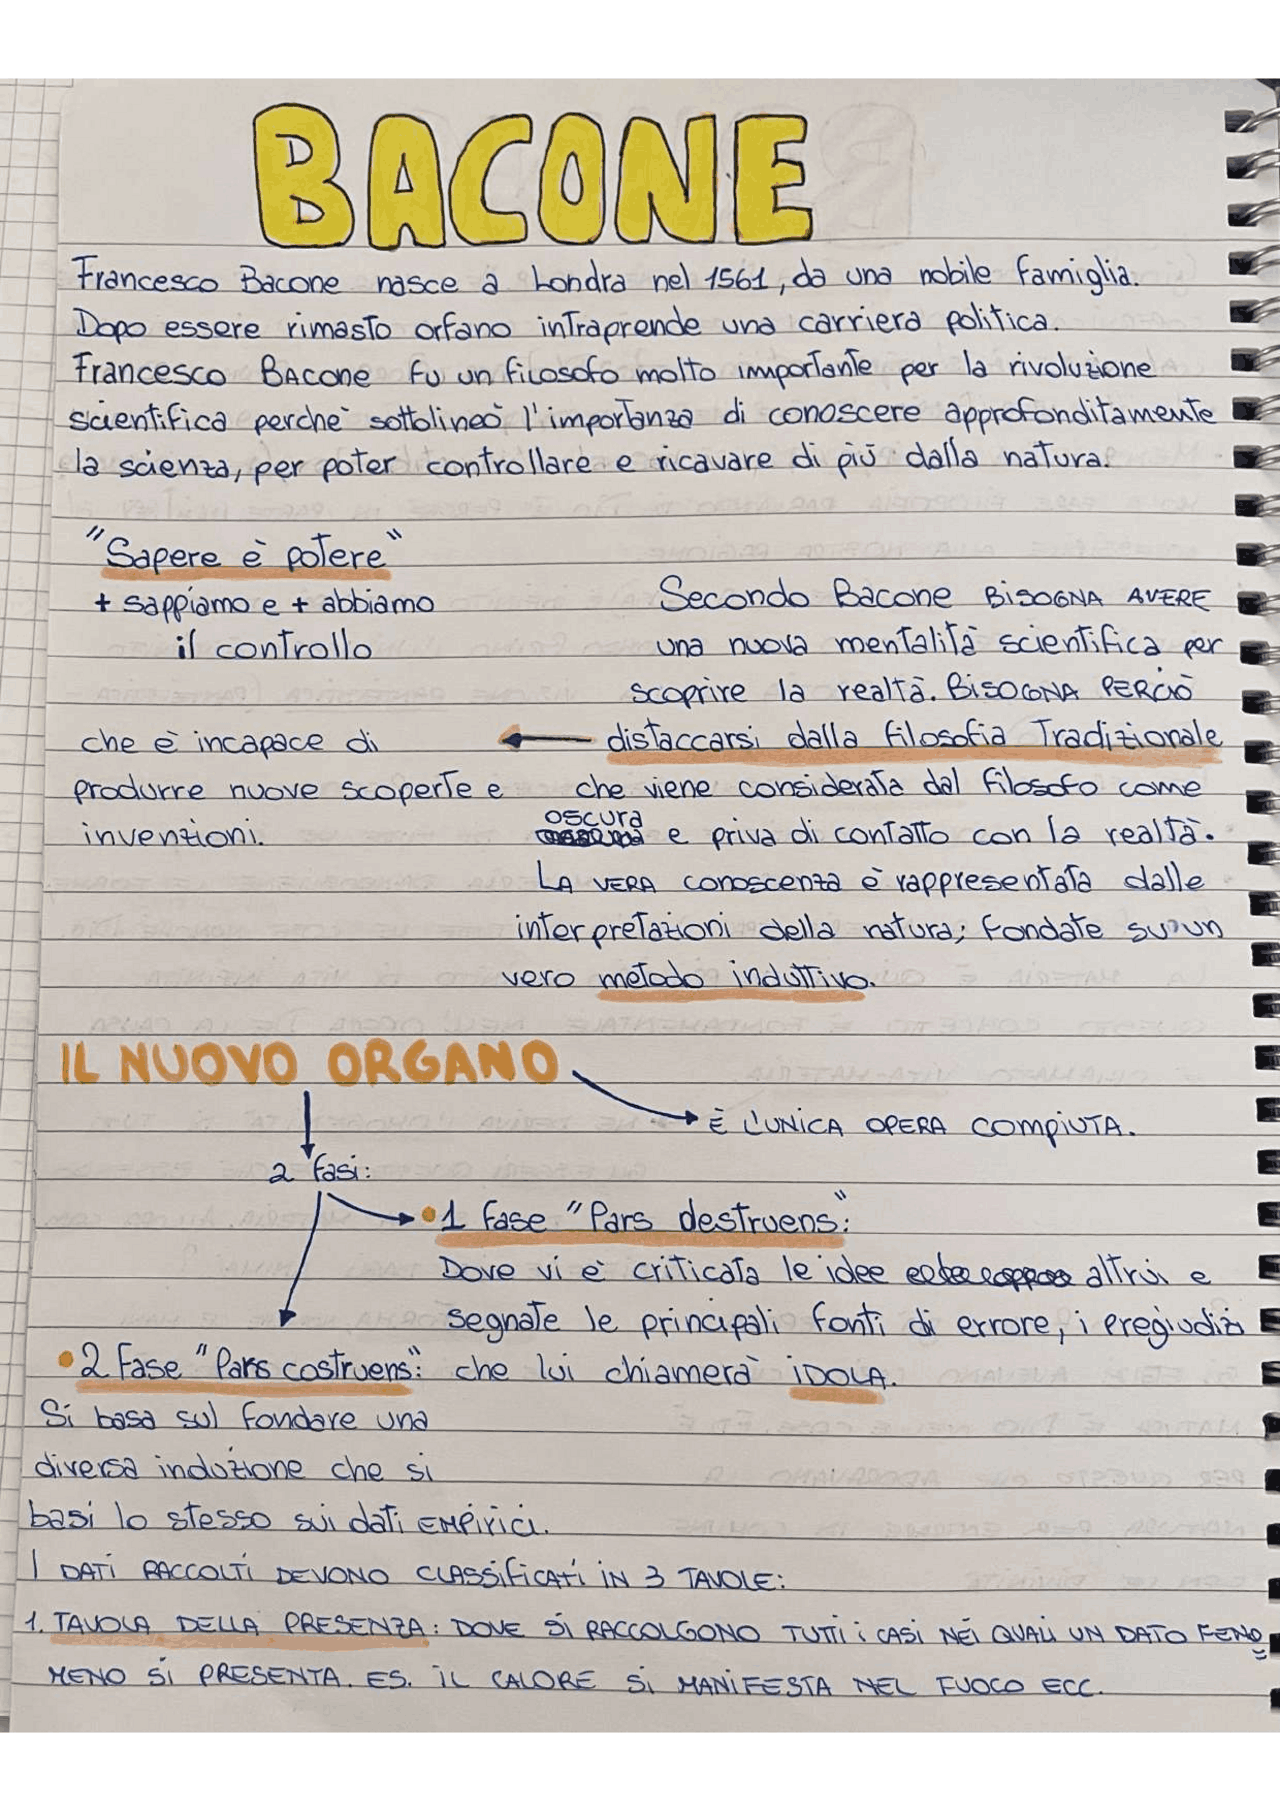 BACONE
Francesco Bacone nasce a Londra nel 1561, da una nobile famiglia.
Dopo essere rimasto orfano intraprende una carriera politica.
Francesco Bacone fu un filosofo molto importante per la rivoluzione
scientifica perchè sottolineò l'importanza di conoscere approfonditamente
la scienza, per poter controllare e ricavare di più dalla natura.
"Sapere è potere"
+ sappiamo e + abbiamo
il controllo
Secondo Bacone BISOGNA AVERE
una nuova mentalità scientifica per
scoprire la realtà. BISOGNA PERCIÒ
distaccarsi dalla filosofia Tradizionale
che è incapace di
produrre nuove scoperte e
invenzioni.
che viene considerata dal filosofo come
oscura
e priva di contatto con la realtà.
LA VERA conoscenza è rappresentata dalle
interpretazioni della natura; fondate su un
vero metodo induttivo.
IL NUOVO ORGANO
È L'UNICA OPERA COMPIUTA.
2 fasi:
• 1 fase "Pars destruens":
Dove vi è criticata le idee altrui e
segnate le principali fonti di errore, i pregiudizi
che lui chiamerà IDOLA.
• 2 Fase "Pars costruens":
Si basa sul fondare una
diversa induzione che si
basi lo stesso sui dati EMPIRICI.
I DATI RACCOLTI DEVONO CLASSIFICATI IN 3 TAVOLE:
1. TAVOLA DELLA PRESENZA: DOVE SI RACCOLGONO TUTTI i CASI NEI QUALI UN DATO FENO
MENO SI PRESENTA. ES. IL CALORE SI MANIFESTA NEL FUOCO ECC.